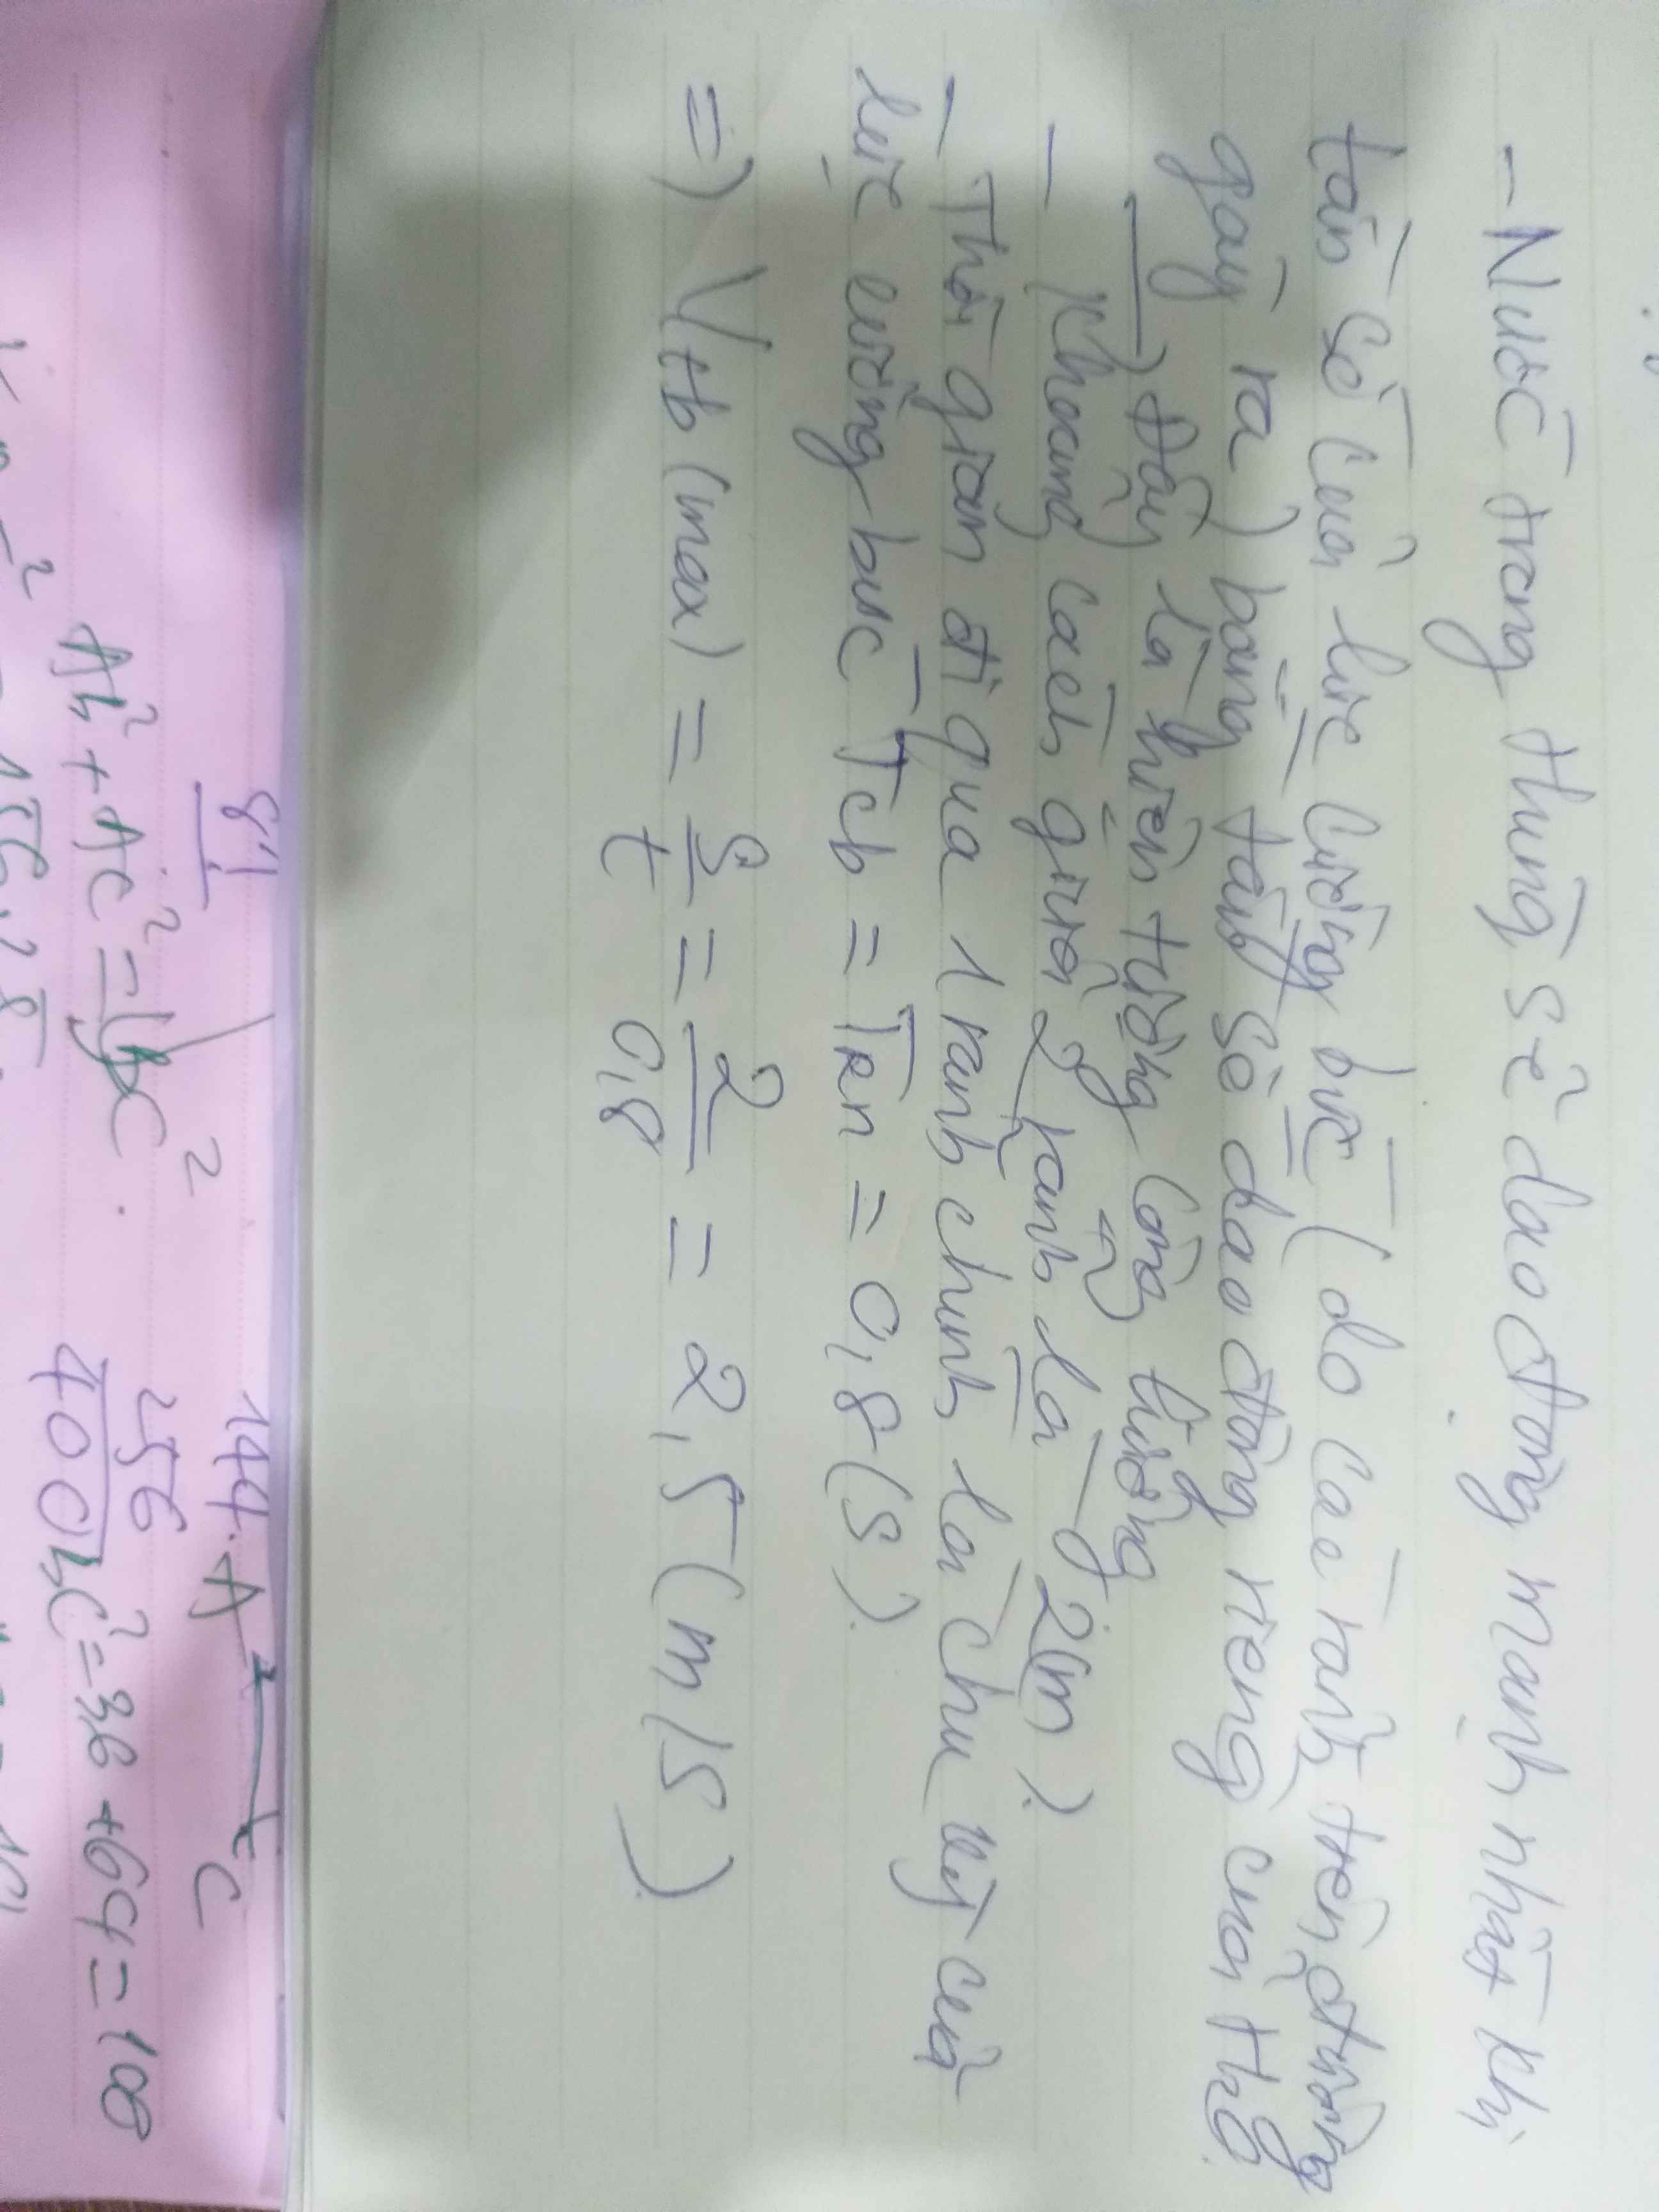 - Nước trong thùng sẽ dao động mạnh nhất khi
tần số của lực cưỡng bức (do các rãnh trên đường
gây ra) bằng tần số dao động riêng của
→ Đây là hiện tượng cộng hưởng
- Khoảng cách giữa 2 rãnh là 2(m).
- Thời gian đi qua 1 rãnh chính là chu kỳ của
lực cưỡng bức Tcb = Trn = 0,8 (s).
=> Vtb (max) = S/t = 2/0,8 = 2,5 (m/s)
81
144. A C
256
400
2
Ab² + AC² = BC²
bC² = 36 + 64 = 100